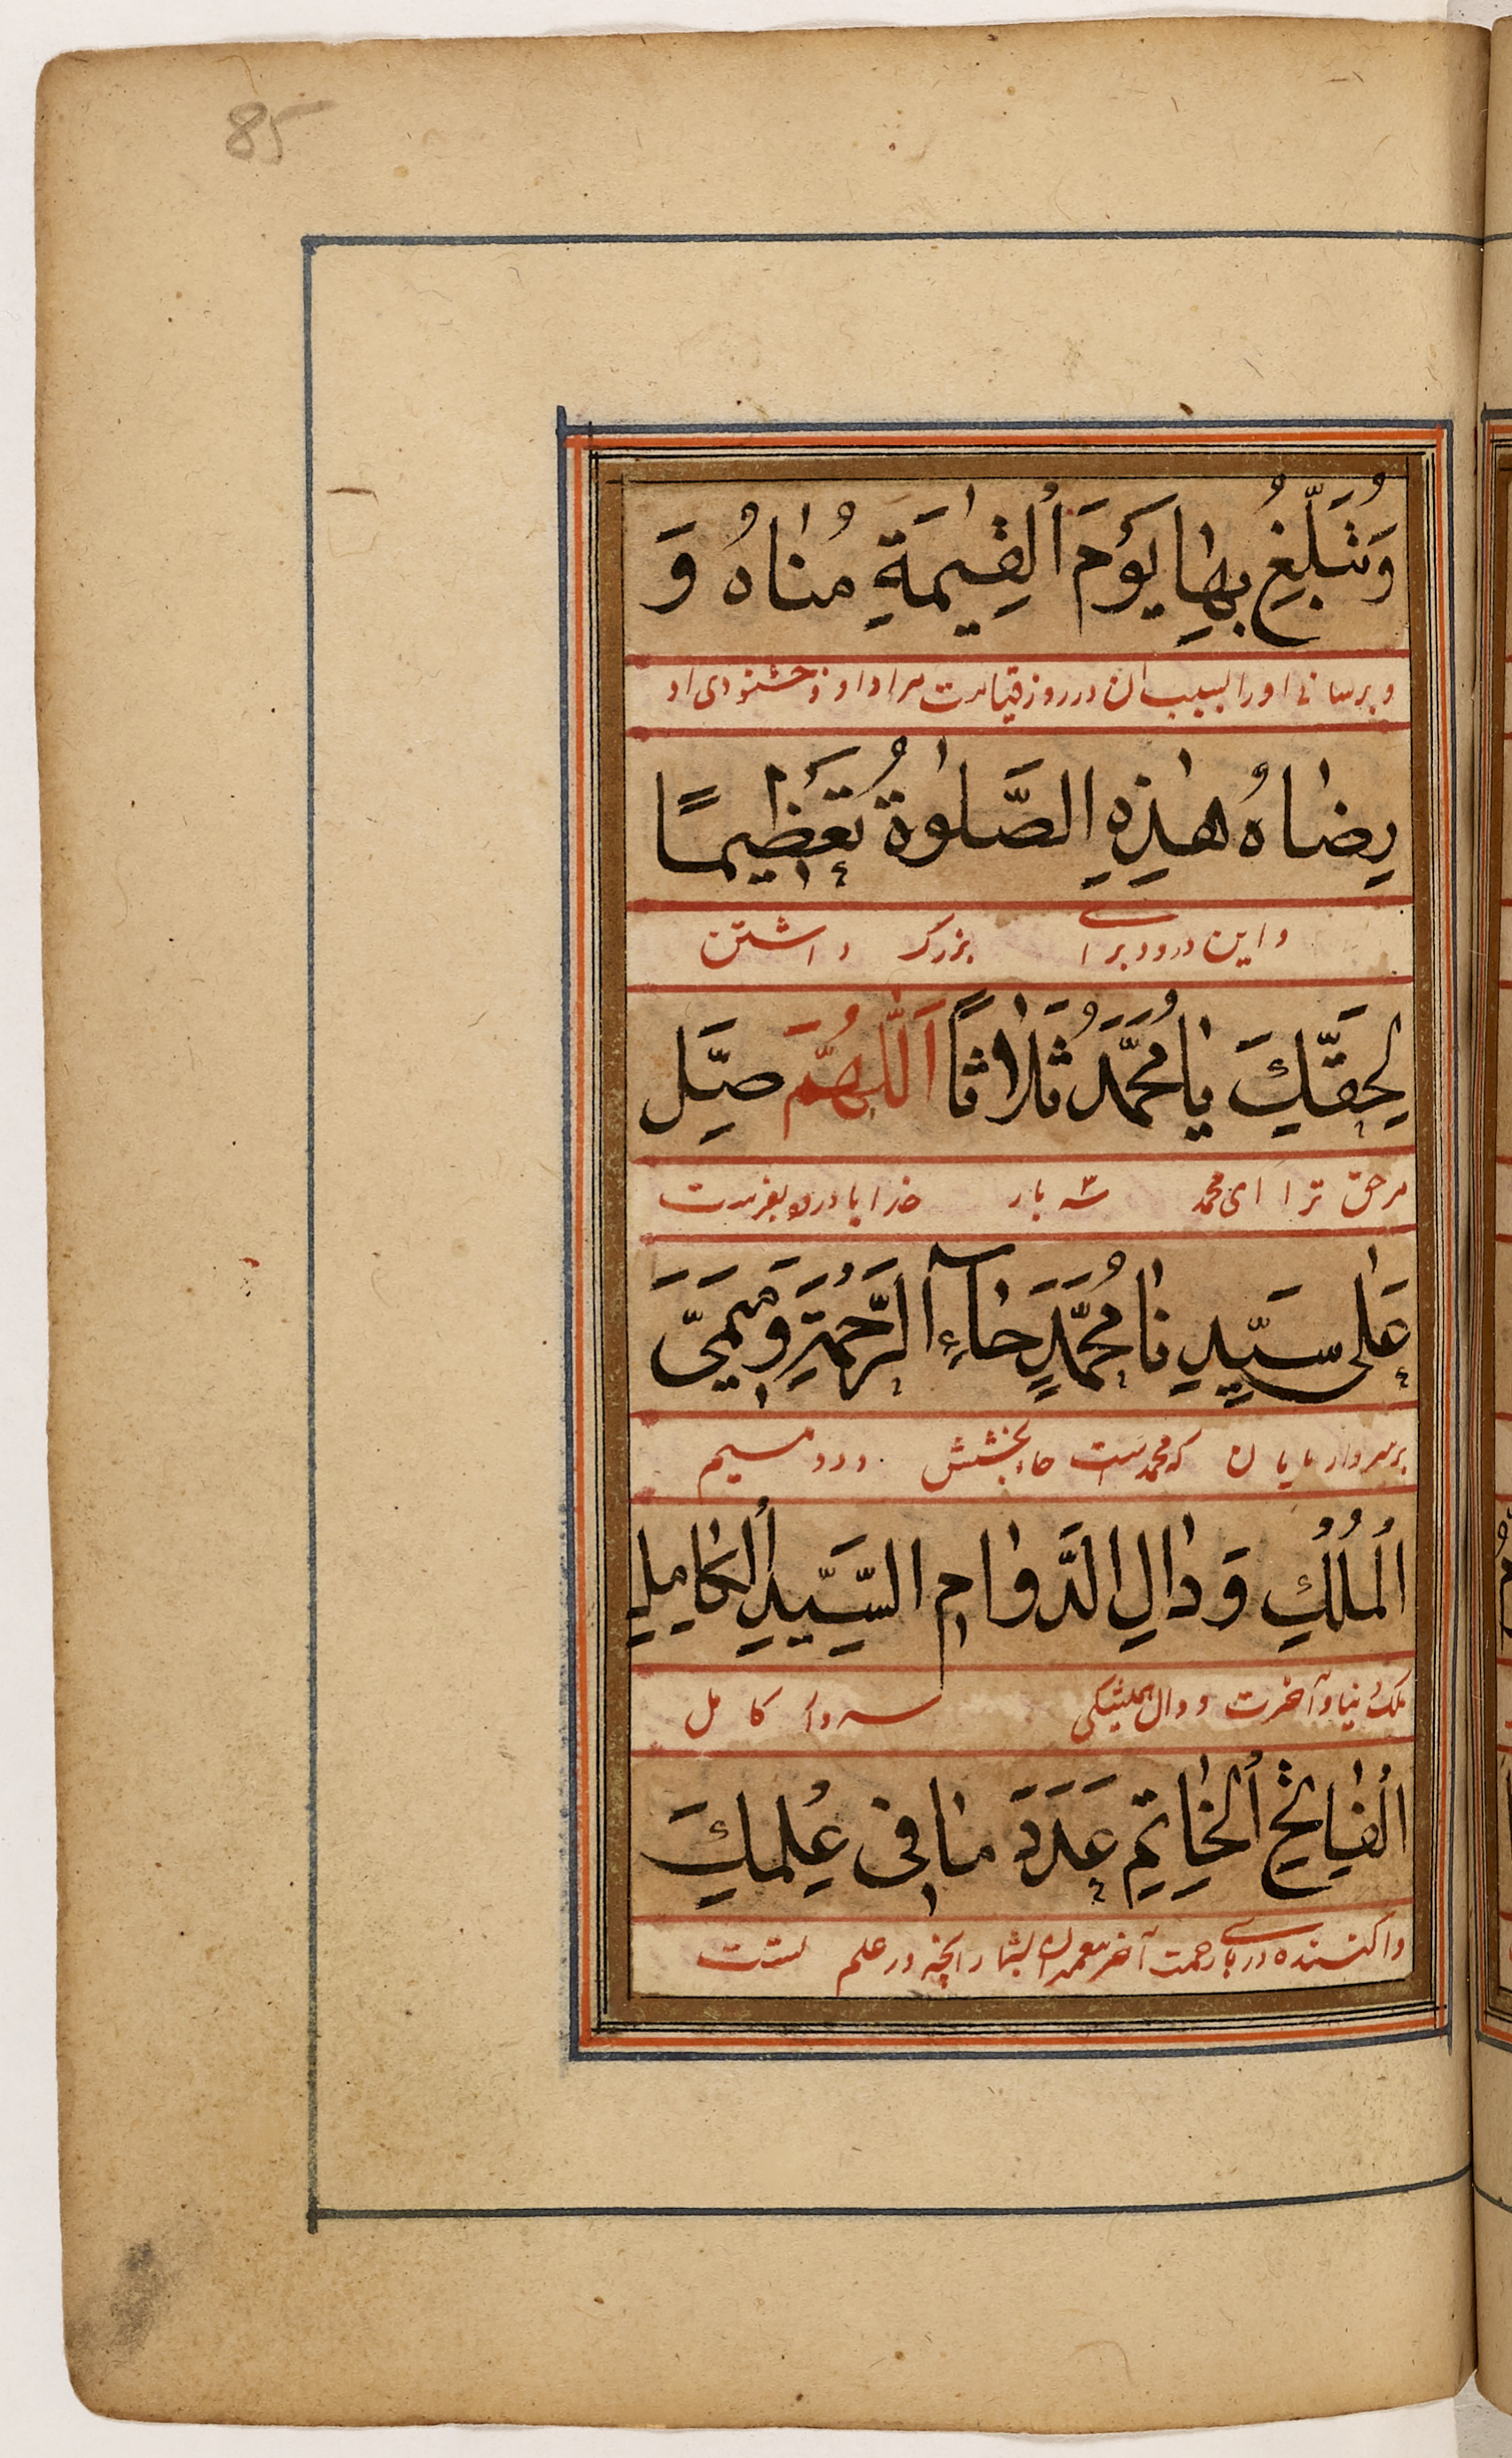 85
وَتُبَلِّغُ بِهَا يَوْمَ الْقِيٰمَةِ مُنَاهُ وَ
و برسانی او را بسبب ان در روز قیامت مراد او و خشنودی او
رِضَاهُ هٰذِهِ الصَّلٰوةُ تَعْظِيمًا
و این درود برای بزرگ داشتن
لِحَقِّكَ يَا مُحَمَّدُ ثَلَاثًا اَللّٰهُمَّ صَلِّ
مر حق ترا ای محمد سه بار خدایا درود بفرست
عَلٰى سَيِّدِنَا مُحَمَّدٍ حَآءِ الرَّحْمَةِ وَمِيمَيِ
بر سردار ما که محمد است حاء بخشش و دو میم
الْمُلْكِ وَدَالِ الدَّوَامِ السَّيِّدِ الْكَامِلِ
ملک دنیا و آخرت و دال همیشگی سردار کامل
الْفَاتِحِ الْخَاتِمِ عَدَدَ مَا فِى عِلْمِكَ
وا کننده در رحمت آخر بشمار انچه در علم تست